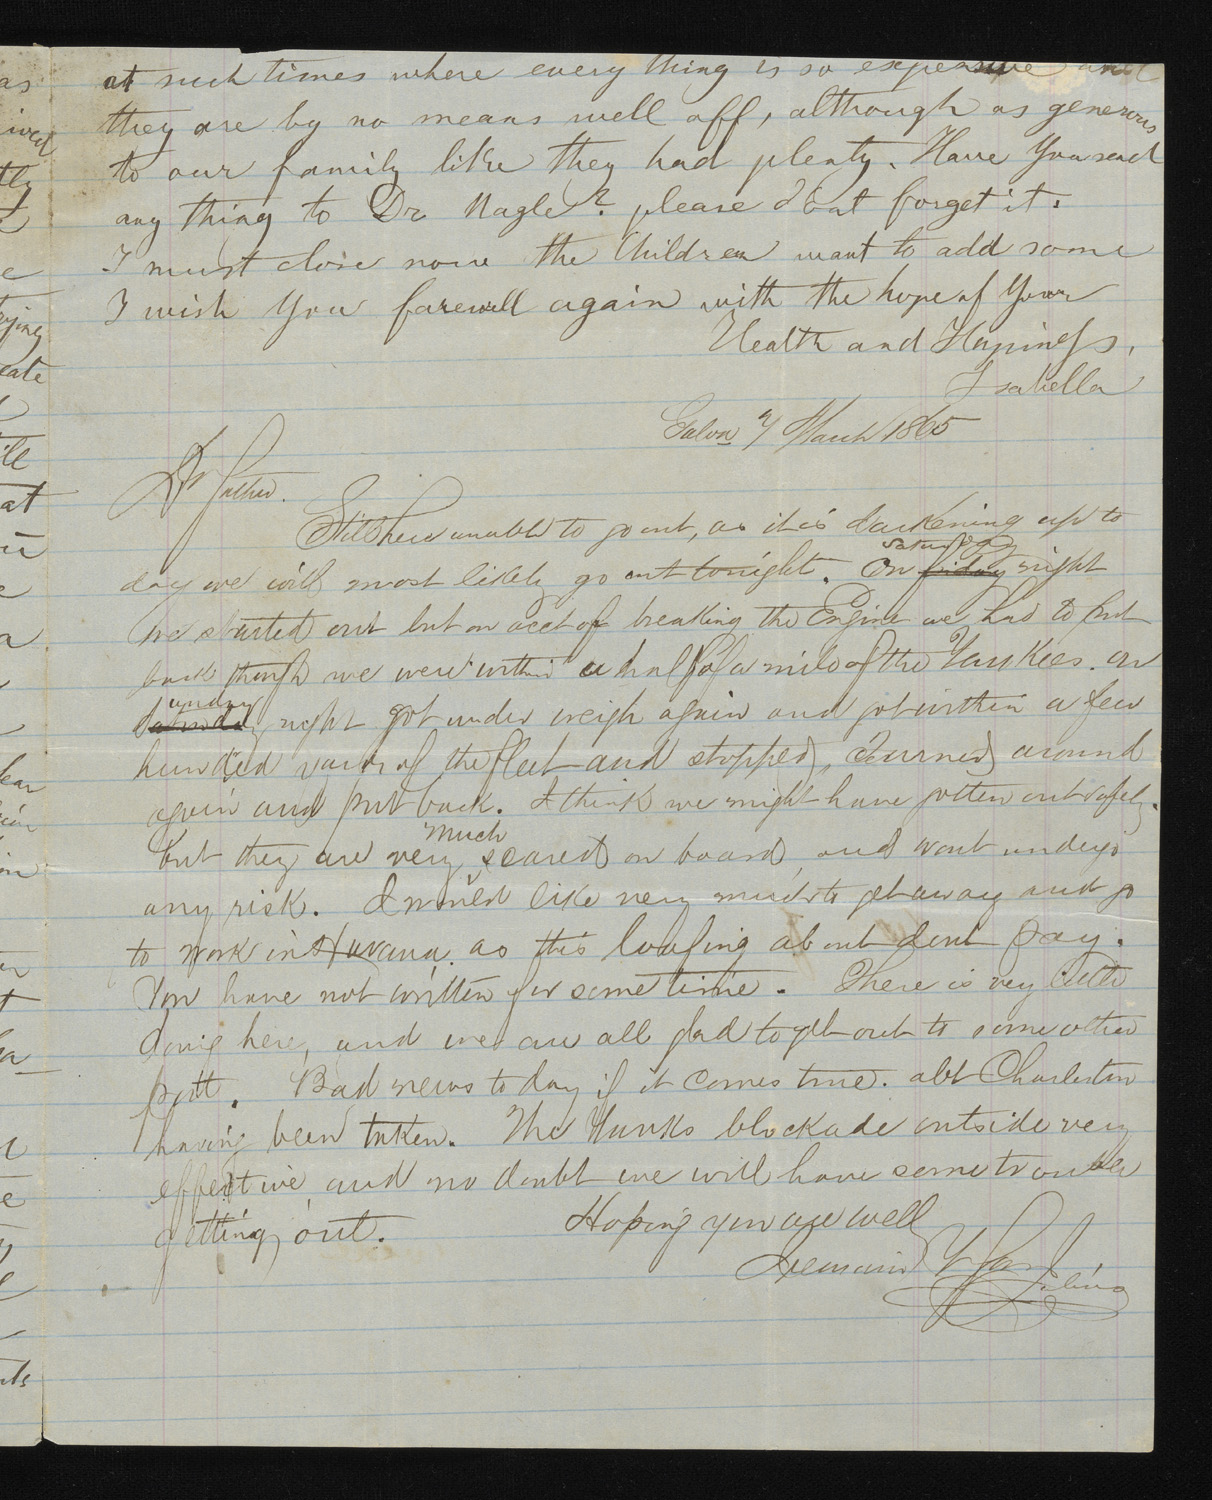 at such times where every thing is so expensive and
they are by no means well off, although as generous
to our family like they had plenty. Have You send
any thing to Dr Nagle? please dont forget it.
I must close now the Children want to add some
I wish You farewell again with the hope of Your
Health and Hapiness,
Isabella
Galvn 7 March 1865
Dr Father.
Still here unable to go out, as it is darkening up to
day we will most likely go out tonight. On friday saturday night
we started out but on acct of breaking the Engine we had to put
back though we were within a half of a mile of the Yankees. on
saturday sunday night got under weigh again and got within a few
hundred yards of the fleet and stopped, turned around
again and put back. I think we might have gotten out safely.
but they are very much scared on board, and wont undergo
any risk. I would like very much to get away and go
to work in Havana. as this loafing about dont pay.
You have not written for some time. There is very little
doing here, and we are all glad to get out to some other
port. Bad news to day if it comes true. abt Charleston
having been taken. The Yanks blockade outside very
effective and no doubt we will have some trouble
getting out. Hoping you are well
I remain Yr